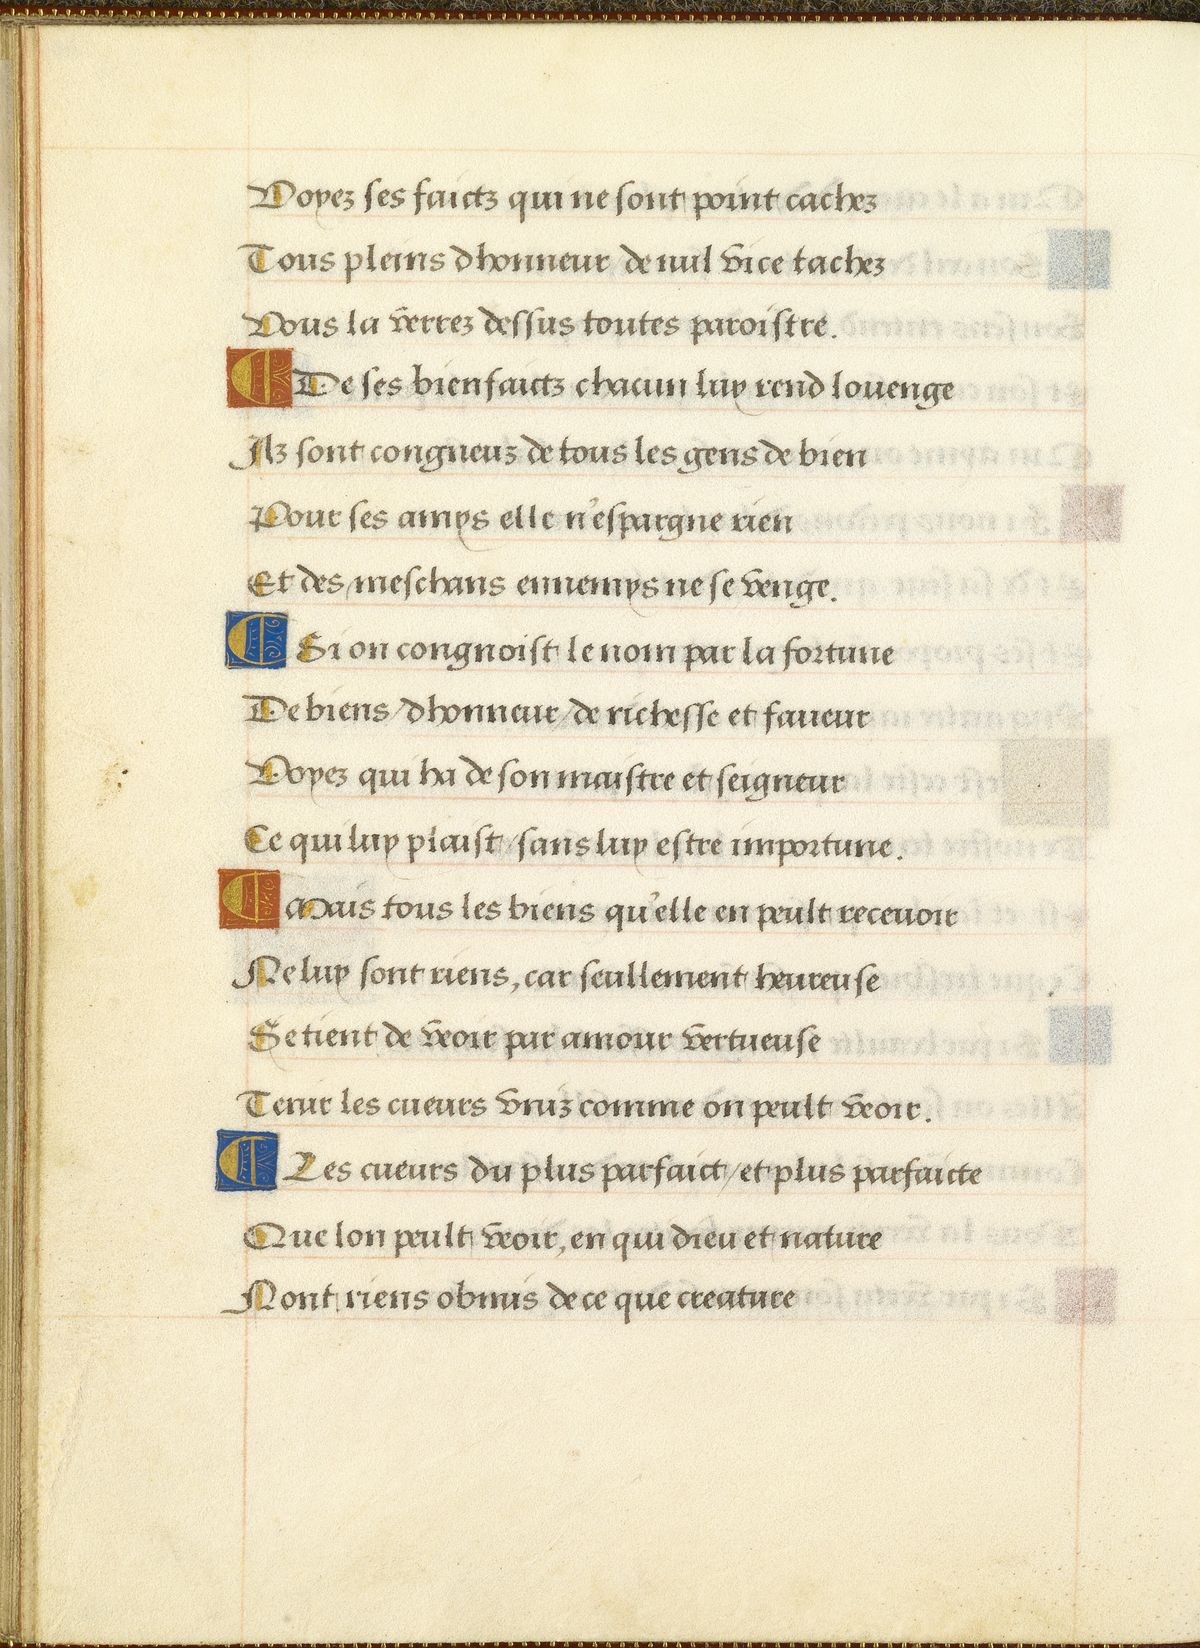 Voyez ses faictz qui ne sont point cachez
Tous pleins dhonneur / de nul vice tachez
Vous la verrez dessus toutes paroistre.
De ses bienfaictz chacun luy rend louenge
Ilz sont congneuz de tous les gens de bien
Pour ses amys elle n'espargne rien
Et des meschans ennemys ne se venge.
Si on congnoist le nom par la fortune
De biens / dhonneur / de richesse et faueur
Voyez qui ha de son maistre et seigneur
Ce qui luy plaist / sans luy estre importune.
Mais tous les biens qu'elle en peult receuoir
Ne luy sont riens, car seullement heureuse
Se tient de veoir par amour vertueuse
Tenir les cueurs vniz comme on peult veoir.
Les cueurs du plus parfaict / et plus parfaicte
Que lon peult veoir, en qui dieu et nature
Nont riens obmis de ce que creature